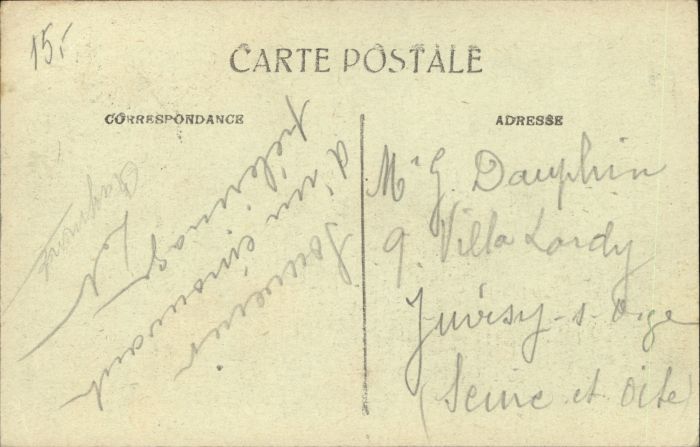 15.-
CARTE POSTALE
CORRESPONDANCE
ADRESSE
Souvenir
d'un émouvant
pèlerinage
Mr G. Dauphin
9. Villa Lardy
Juvisy-s-Orge
(Seine et Oise)